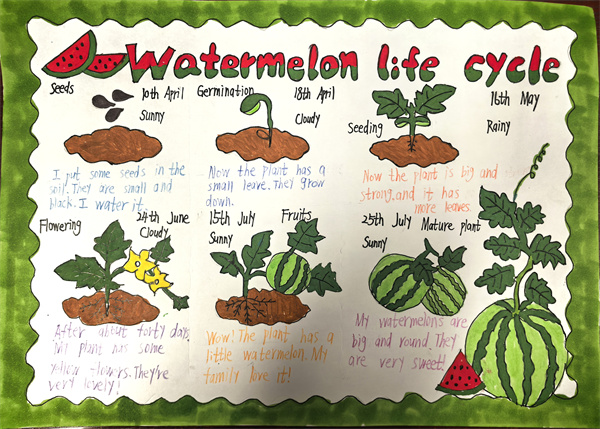 Watermelon life cycle
Seeds
10th April
Sunny
I put some seeds in the
soil. They are small and
black. I water it.
Germination
18th April
Cloudy
Now the plant has a
small leave. They grow
down.
16th May
Seeding
Rainy
Now the plant is big and
strong. and it has
more leaves.
Flowering
24th June
Cloudy
After about forty days
My plant has some
yellow flowers. They're
very lovely!
15th July
Fruits
Sunny
Wow! The plant has a
little watermelon. My
family love it!
25th July
Mature plant
Sunny
My watermelons are
big and round. They
are very sweet!